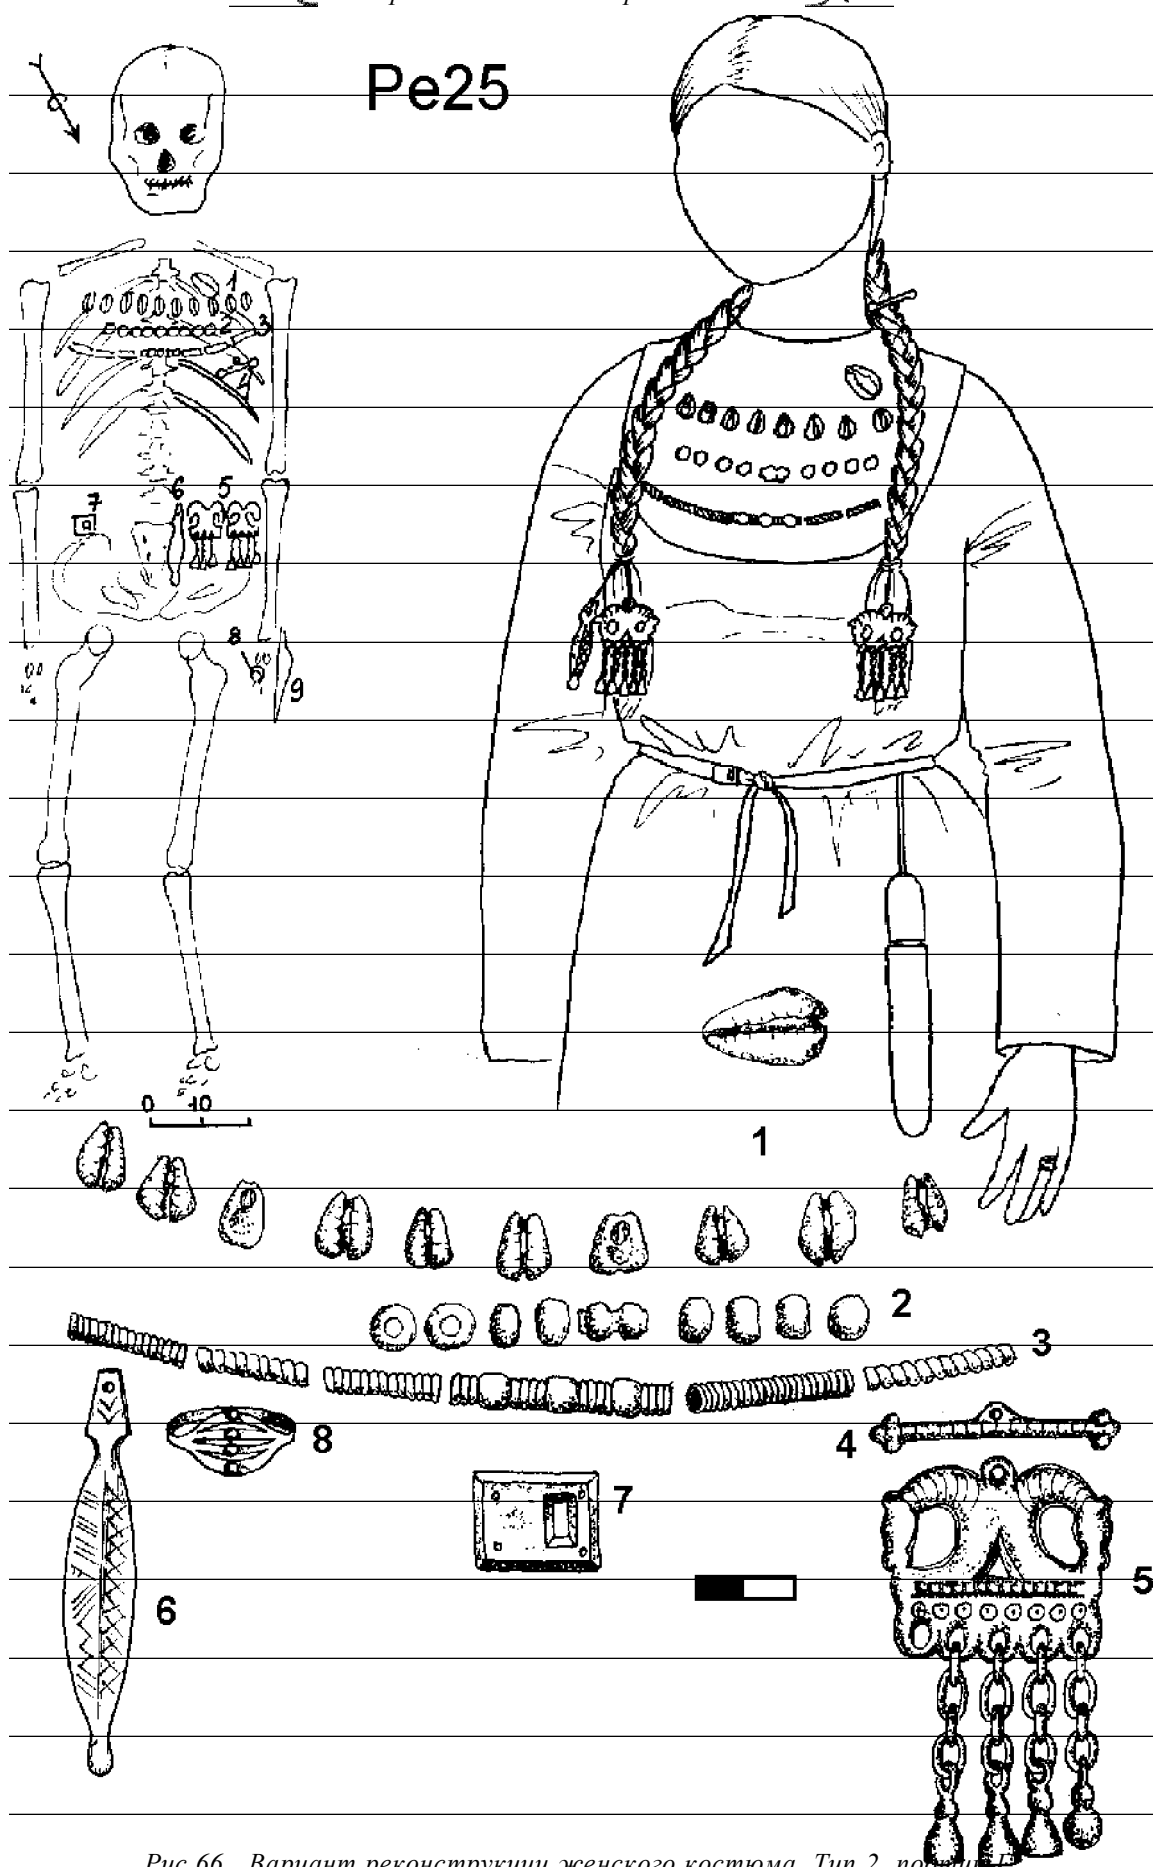 Ре25
1
2
3
4
7
6
5
8
9
0
10
1
2
3
8
4
7
5
6
Рис 66. Вариант реконструкции женского костюма. Тип 2,